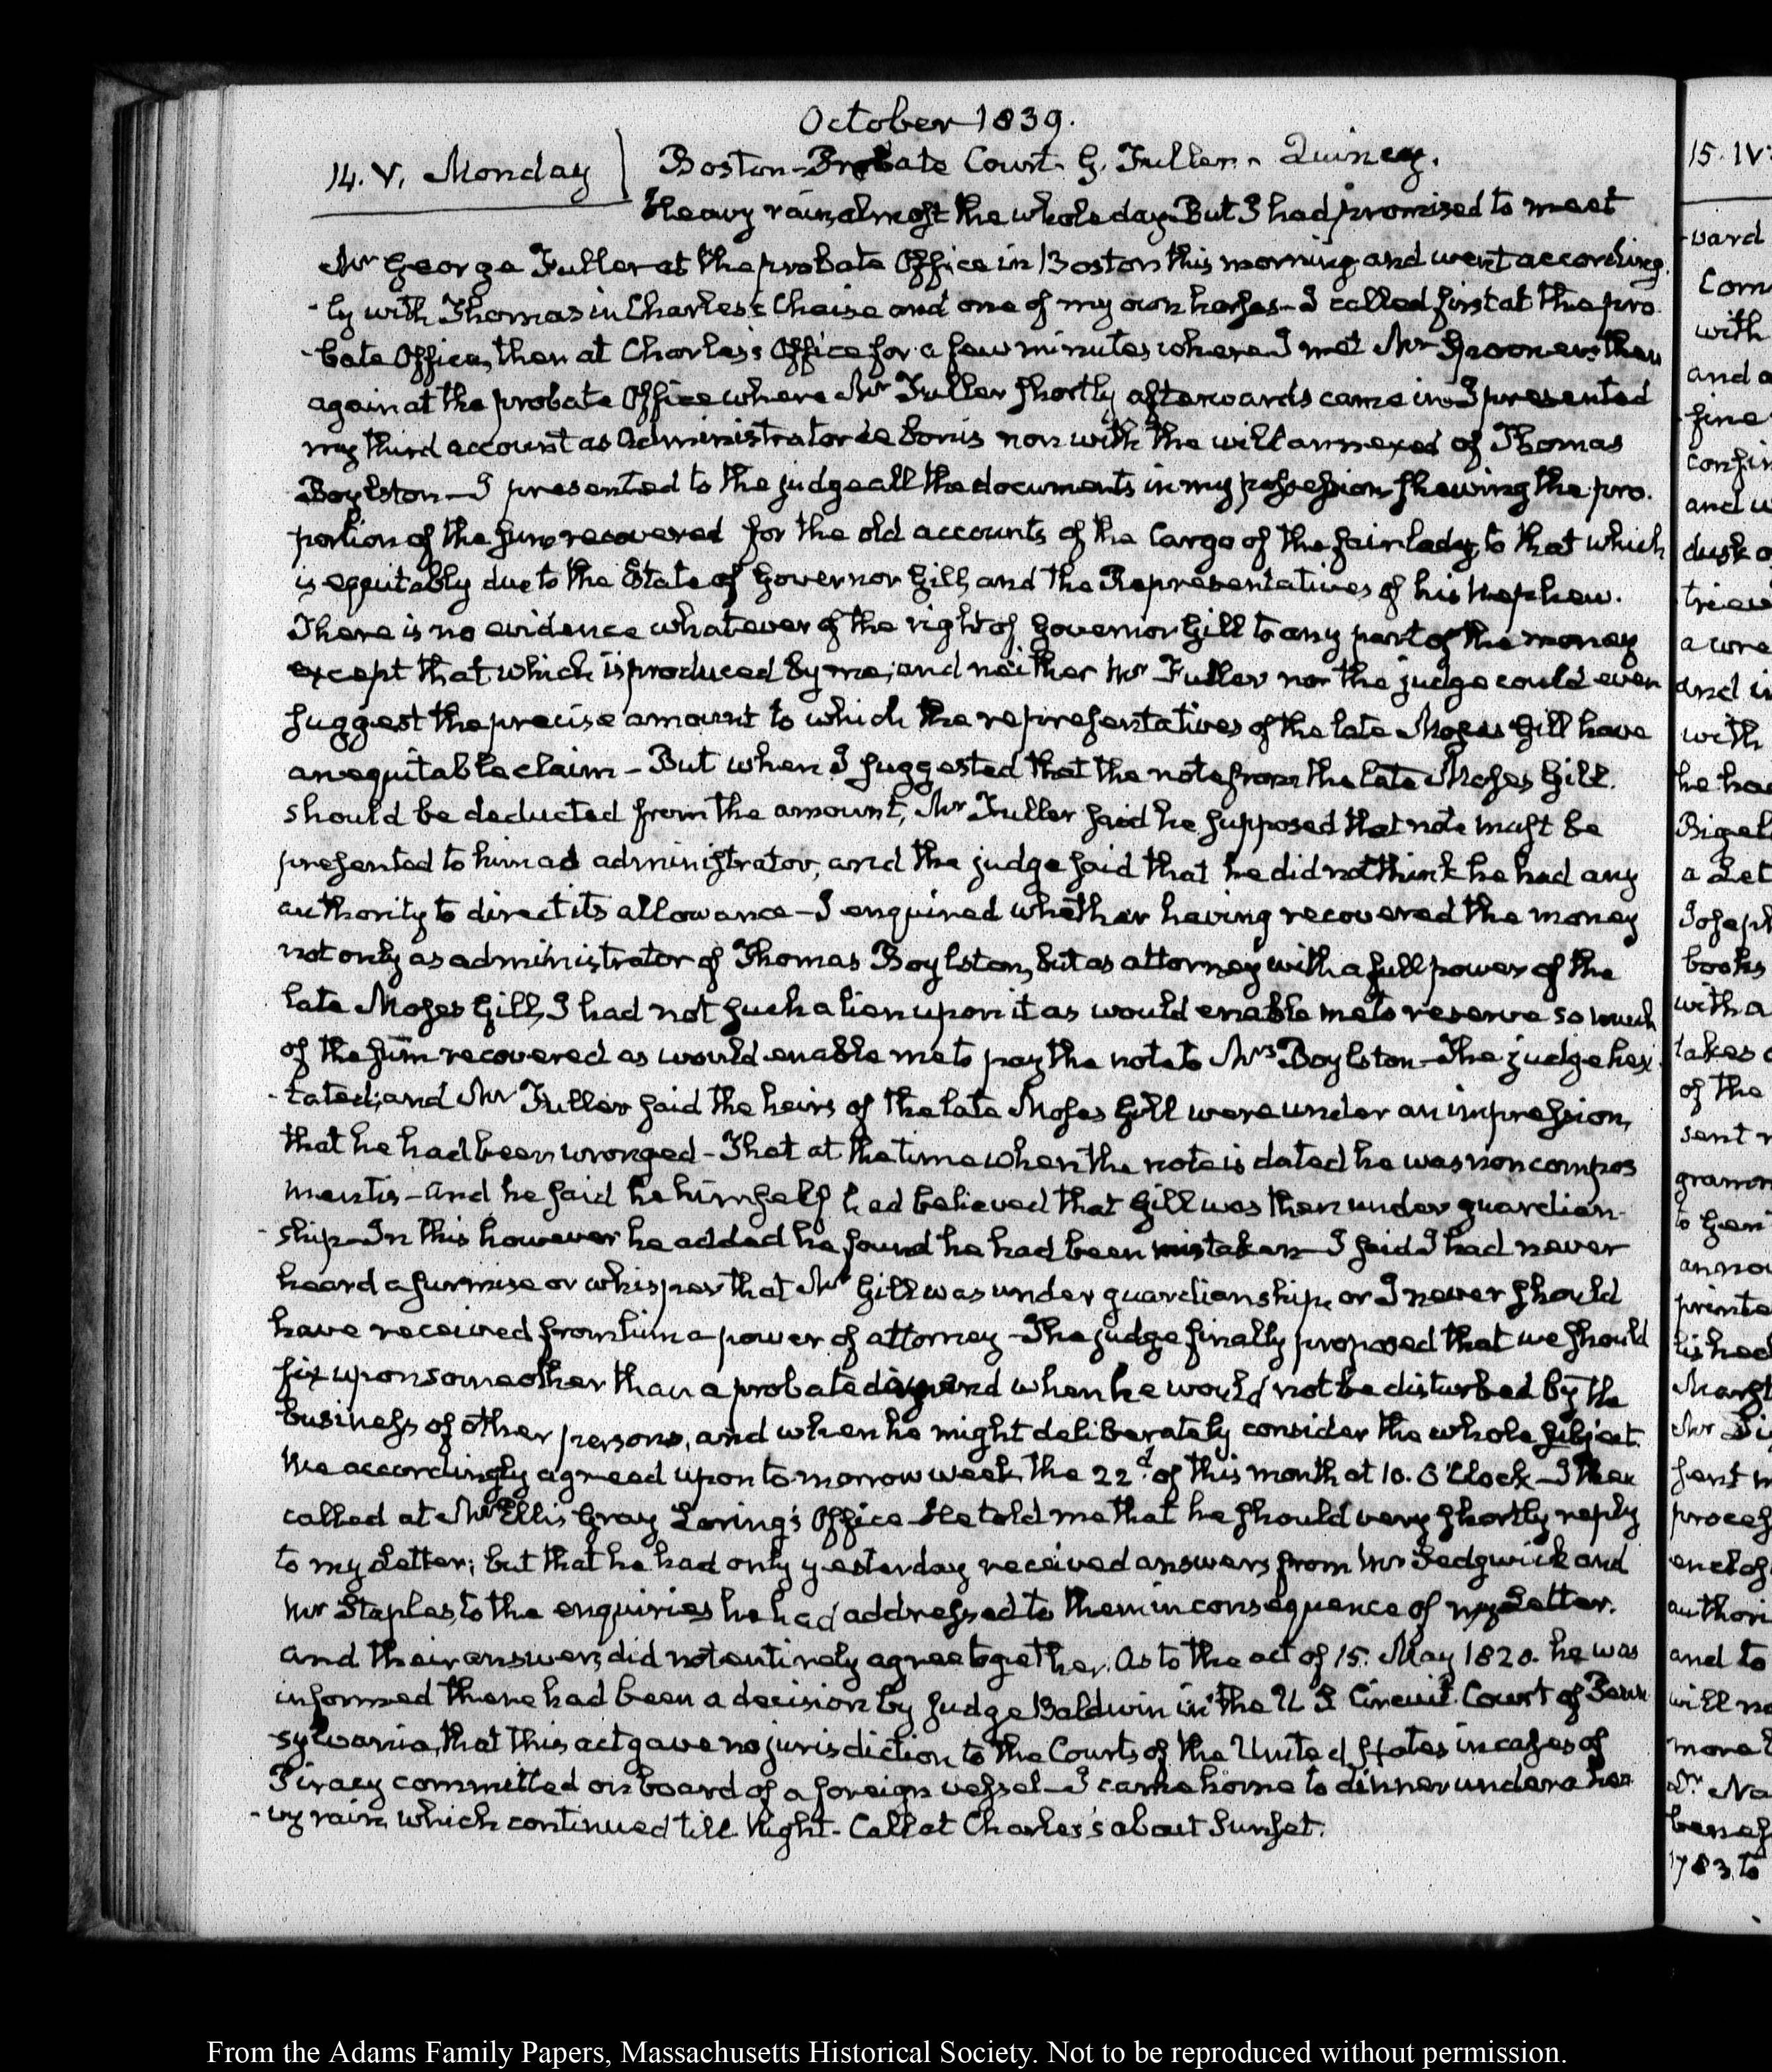 October 1839.
14. V. Monday
Boston – Probate Court. G. Fuller – Quincy.
Heavy rain, almost the whole day. But I had promised to meet
Mr George Fuller at the probate Office in Boston this morning and went according-
-ly with Thomas in Charles's Chaise and one of my own horses – I called first at the pro-
-bate Office, then at Charles's Office for a few minutes where I met Mr Spooner then
again at the probate Office where Mr Fuller shortly afterwards came in – I presented
my third account as Administrator de bonis non with the will annexed of Thomas
Boylston – I presented to the judge all the documents in my possession shewing the pro-
portion of the sum recovered for the old accounts of the Cargo of the fair lady, to that which
is equitably due to the Estate of Governor Gill, and the Representatives of his Nephew.
There is no evidence whatever of the right of Governor Gill to any part of the money
except that which is produced by me; and neither Mr Fuller nor the judge could even
suggest the precise amount to which the representatives of the late Moses Gill have
an equitable claim – But when I suggested that the note from the late Moses Gill
should be deducted from the amount, Mr Fuller said he supposed that note must be
presented to him as administrator, and the judge said that he did not think he had any
authority to direct its allowance – I enquired whether having recovered the money
not only as administrator of Thomas Boylston, but as attorney with a full power of the
late Moses Gill, I had not such a lien upon it as would enable me to reserve so much
of the sum recovered as would enable me to pay the note to Mrs Boylston – The judge hesi-
-tated; and Mr Fuller said the heirs of the late Moses Gill were under an impression,
that he had been wronged – That at the time when the note is dated he was non compos
mentis – and he said he himself had believed that Gill was then under guardian-
-ship – In this however he added he found he had been mistaken – I said I had never
heard a surmise or whisper that Mr Gill was under guardianship, or I never should
have received from him a power of attorney – The judge finally proposed that we should
fix upon some other than a probate day and when he would not be disturbed by the
business of other persons, and when he might deliberately consider the whole subject.
We accordingly agreed upon to-morrow week, the 22d of this month at 10. O'Clock – I then
called at Mr Ellis Gray Loring's Office – He told me that he should very shortly reply
to my Letter; but that he had only yesterday received answers from Mr Sedgwick and
Mr Staples, to the enquiries he had addressed to them in consequence of my Letter.
and their answers did not entirely agree together. As to the act of 15. May 1820. he was
informed there had been a decision by Judge Baldwin in the U S Circuit Court of Penn
-sylvania, that this act gave no jurisdiction to the Courts of the United States in cases of
Piracy committed on board of a foreign vessel – I came home to dinner under a hea-
-vy rain, which continued till Night – Call at Charles's about Sunset.
15. IV
-vard
Com
with
and a
fine
confir
and w
dusk o
a wre
and i
with
he had
Bigel
a Let
Joseph
books
with a
takes
of the
sent
gramm
to Gen
anno
printe
lished
Marsh
Mr
sent m
proces
authori
and to
will no
more
Dr
benef
1783. to
From the Adams Family Papers, Massachusetts Historical Society. Not to be reproduced without permission.